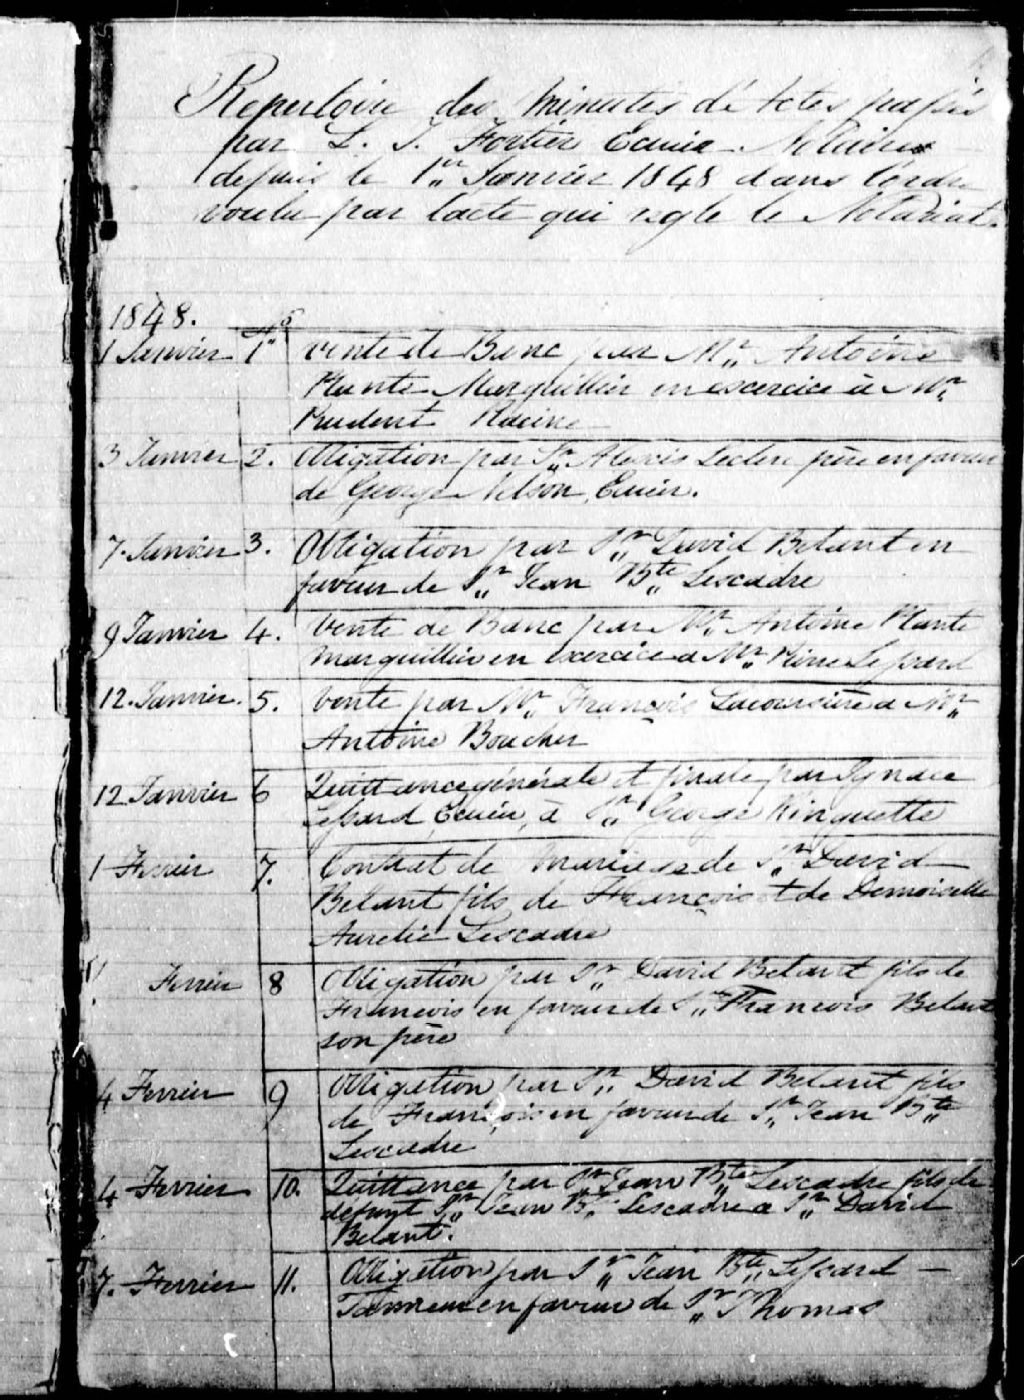 Repertoire des minutes d'Actes passés
par L. J. Fortier Ecuier Notaire
depuis le 1er Janvier 1848 dans l'ordre
voulu par l'acte qui regle le Notariat.
1848.
1 Janvier 1 Vente de Banc par Mr Antoine
Plante Marguillier en excercice à Mr
Prudent Racine
3 Janvier 2. Obligation par Sr Alexis Leclerc père en faveur
de George Nelson, Ecuier.
7. Janvier 3. Obligation par Sr David Belant en
faveur de Sr Jean Bte Lescadre
9 Janvier 4. Vente de Banc par Mr Antoine Plante
Marguillier en excercice a Mr Pierre Lessard
12. Janvier. 5. Vente par Mr François Lacoursière a Mr
Antoine Boucher
12 Janvier 6 Quittance générale et finale par Ignace
Lessard, Ecuier, à Sr George Ringuette
1 Fevrier 7. Contrat de Mariage de Sr David
Belant fils de François et de Demoiselle
Aurelie Lescadre
Fevrier 8 Obligation par Sr David Belant fils de
Francois en faveur de Sr Francois Belant
son père
4 Fevrier 9 Obligation par Sr David Belant fils
de François en faveur de Sr Jean Bte
Lescadre
4 Fevrier 10. Quittance par Sr Jean Bte Lescadre fils de
defunt Sr Jean Bte Lescadre a Sr David
Belant.
7. Fevrier 11. Obligation par Sr Jean Bte Lessard
en faveur de Sr Thomas